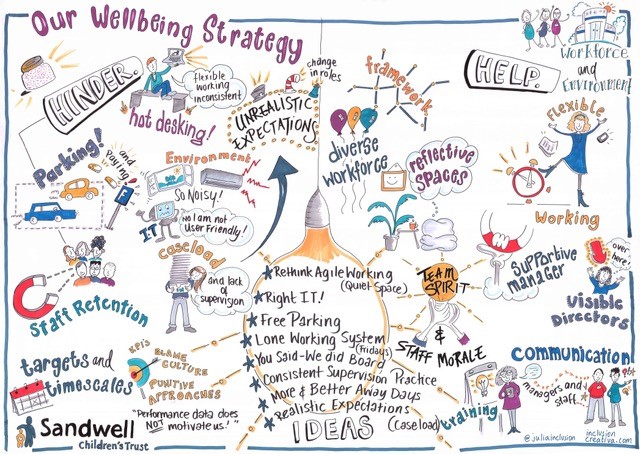 Our Wellbeing Strategy
HINDER.
flexible
working
inconsistent
hot desking!
UNREALISTIC
EXPECTATIONS
change
in roles
Parking!
and
Paying!
P
Environment
So Noisy!
I.T
No I am not
User Friendly!
caseload
and lack
of
supervision
Staff Retention
targets and
timescales
KPI's
BLAME
CULTURE
PUNITIVE
APPROACHES
"Performance data does
NOT motivate us!"
Sandwell
Children's Trust
framework
HELP.
Workforce
and
Environment
diverse
workforce
reflective
spaces
flexible
Working
supportive
manager
over
here!
Visible
Directors
TEAM
SPIRIT
&
STAFF MORALE
Communication!
managers and
staff
training
Rethink Agile Working
(Quiet Space)
Right IT!
Free Parking
Lone Working System
(Fridays)
You Said-We did Board
Consistent Supervision Practice
More & Better Away Days
Realistic Expectations
(Caseload)
IDEAS
@juliainclusion
inclusion
creativa.com